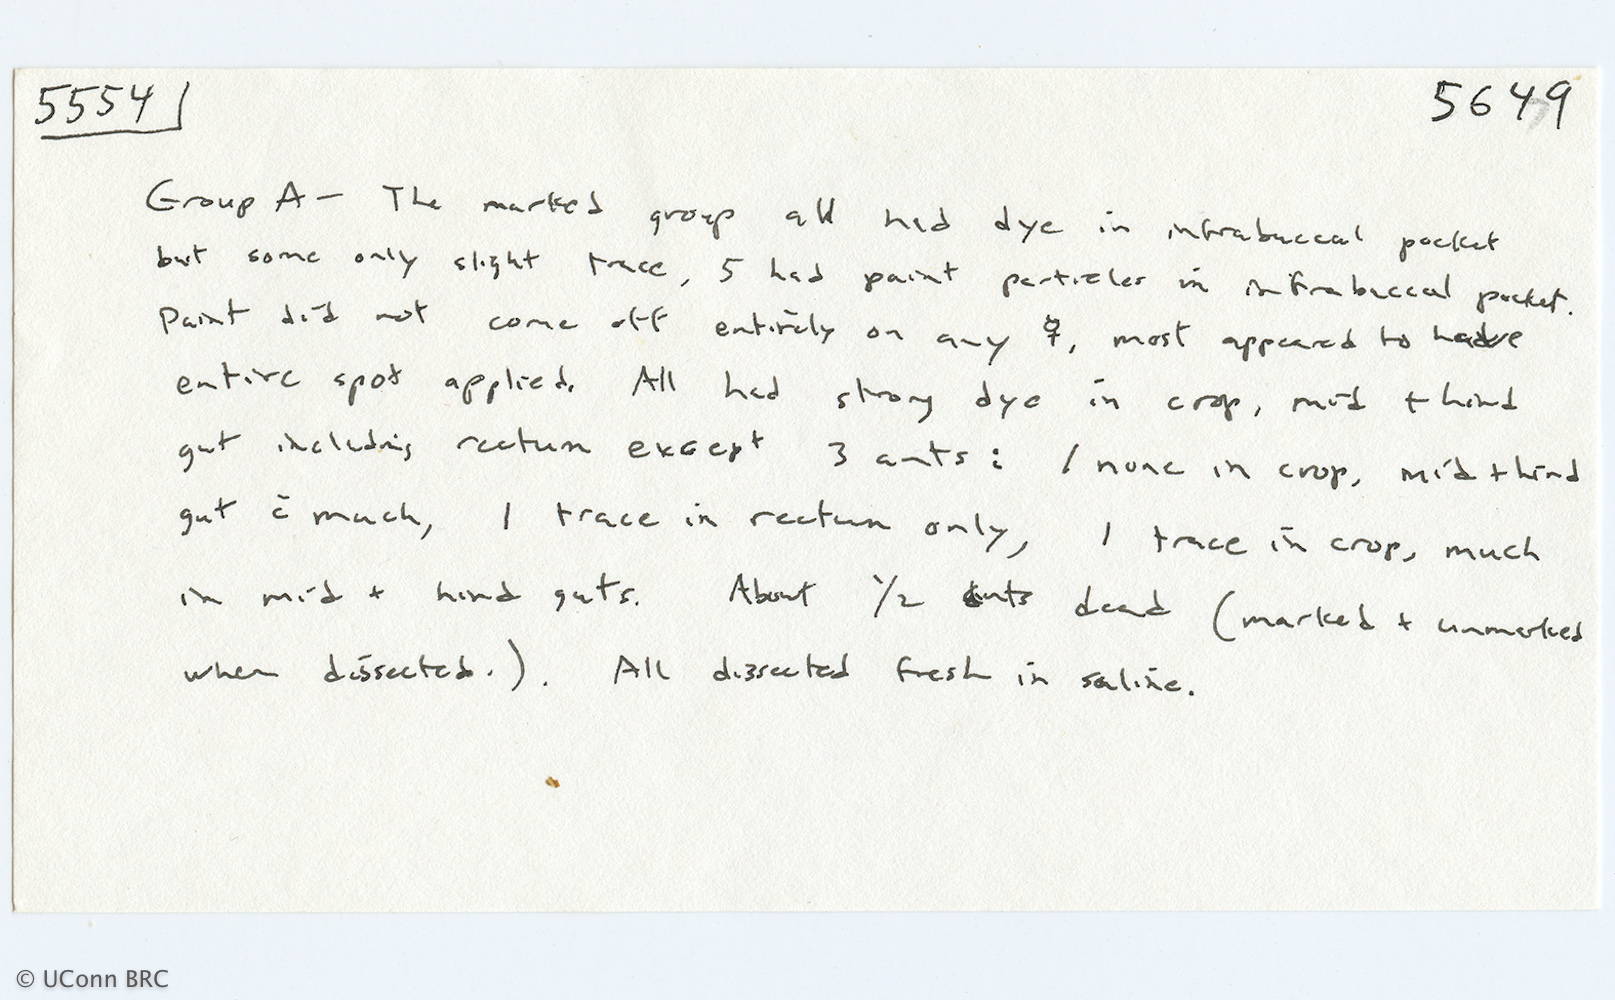 5554 5649
Group A - The marked group all had dye in infrabuccal pocket
but some only slight trace, 5 had paint particles in infrabuccal pocket.
Paint did not come off entirely on any ☿, most appeared to have
entire spot applied. All had strong dye in crop, mid + hind
gut including rectum except 3 ants: 1 none in crop, mid + hind
gut c̄ much, 1 trace in rectum only, 1 trace in crop, much
in mid + hind guts. About 1/2 ants dead (marked + unmarked
when dissected.). All dissected fresh in saline.
© UConn BRC